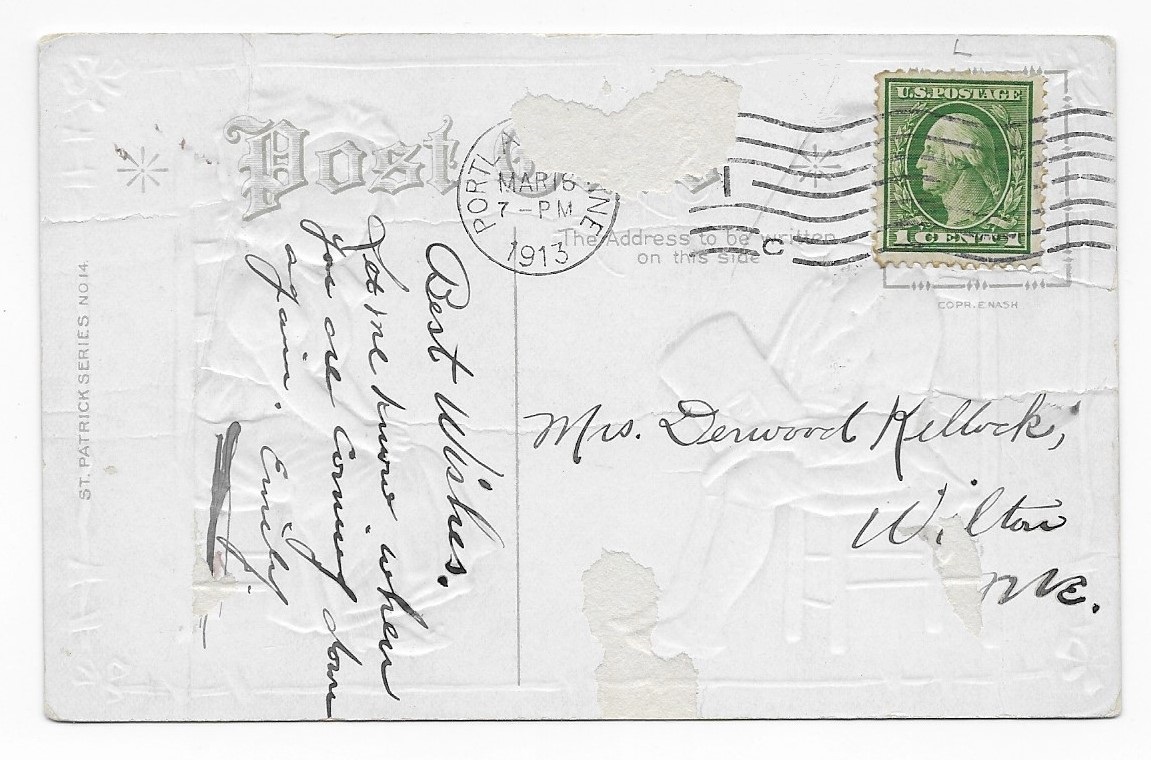 Post
PORTLA INE
MAR 16
7-PM
1913
1
C
U.S. POSTAGE
1 CENT 1
COPR. E NASH
The Address to be written
on this side
ST. PATRICK SERIES NO 14.
Best Wishes.
Let me know when
you are coming down
again. Emily
Mrs. Derwood Kellock,
Wilton
Me.